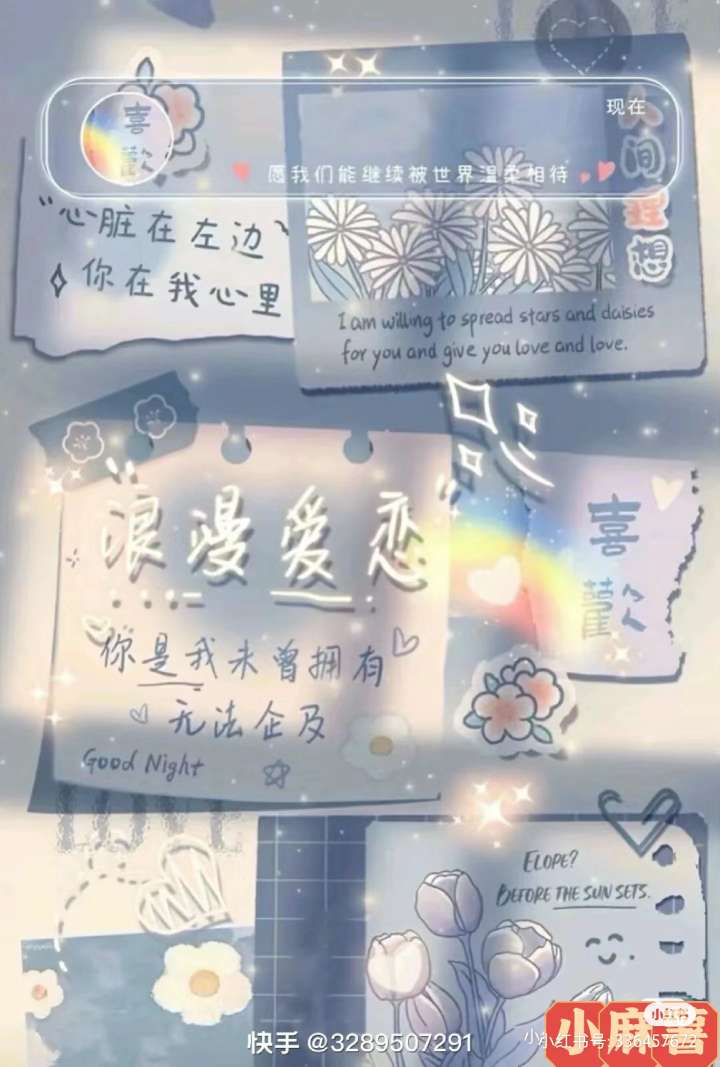 现在
喜
歡
愿我们能继续被世界温柔相待
人间理想
"心脏在左边
你在我心里
I am willing to spread stars and daisies
for you and give you love and love.
"浪漫爱恋"
喜
歡
你是我未曾拥有
无法企及
Good Night
LOVE
ELOPE?
BEFORE THE SUN SETS.
快手 @3289507291
小红书
小红书号:336457672
小麻薯